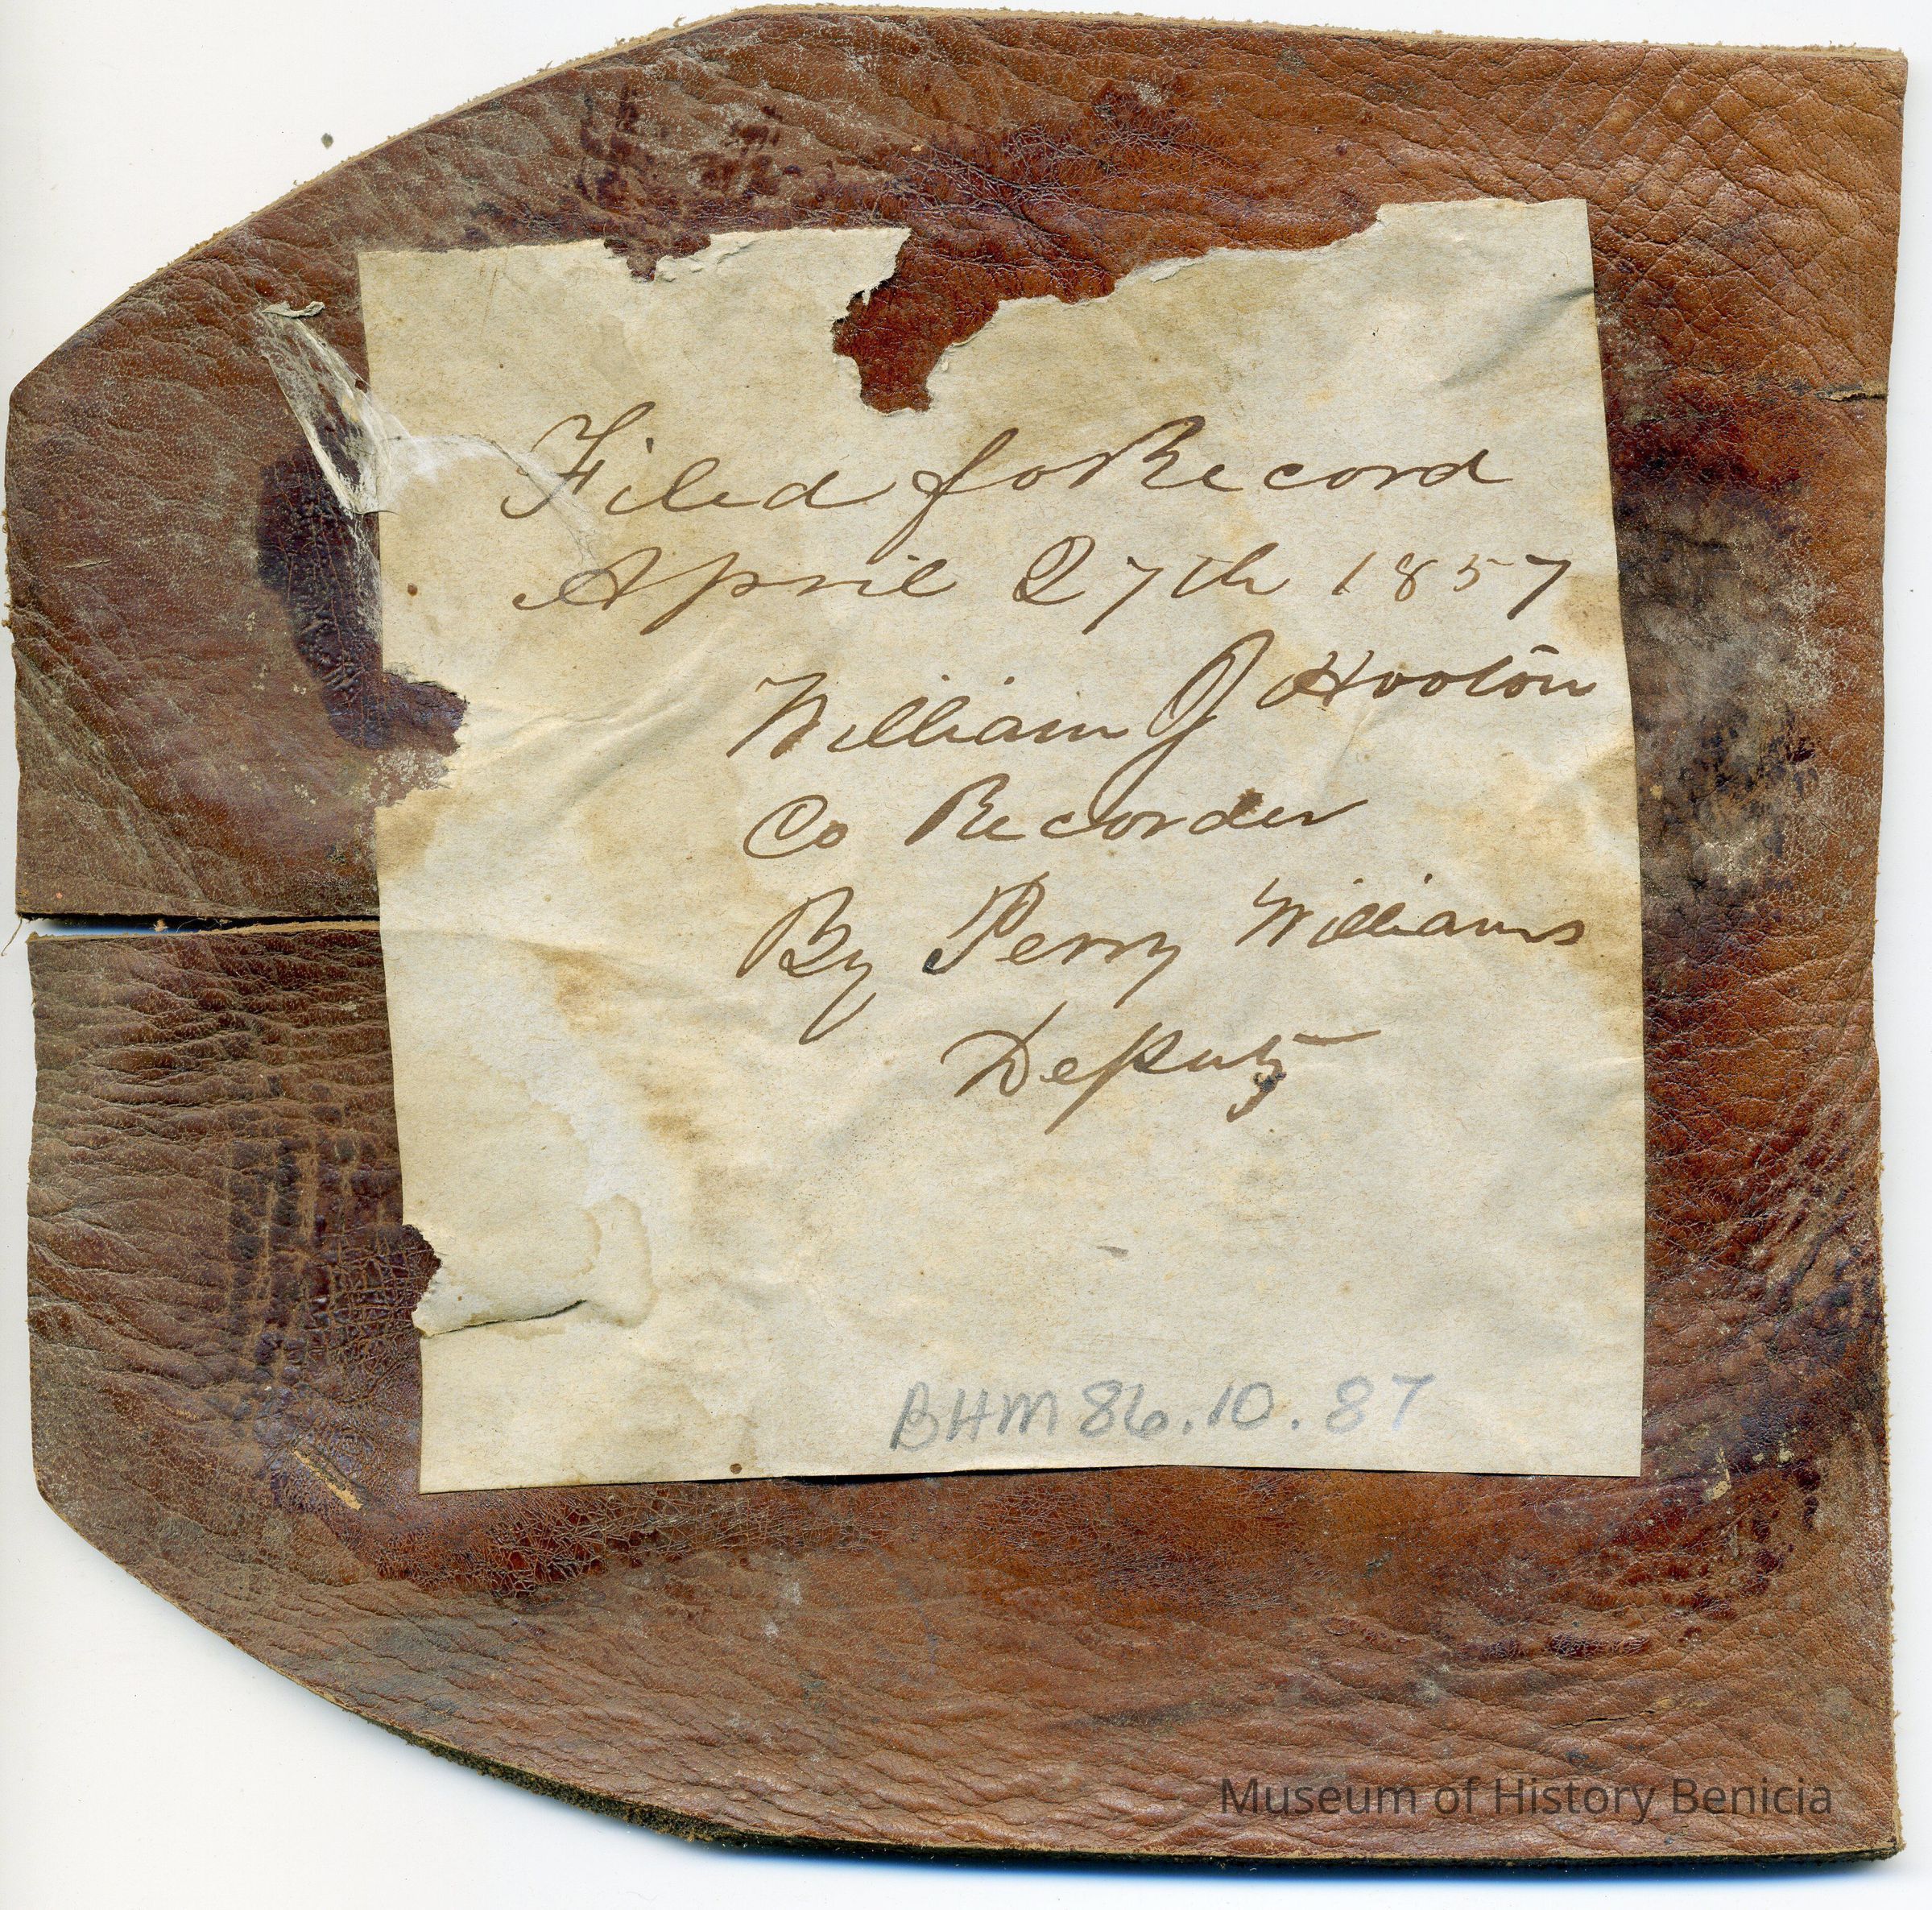 Filed fo Record
April 27th 1857
William J Hooton
Co Recorder
By Perry Williams
Deputy
BHM 86.10.87
Museum of History Benicia